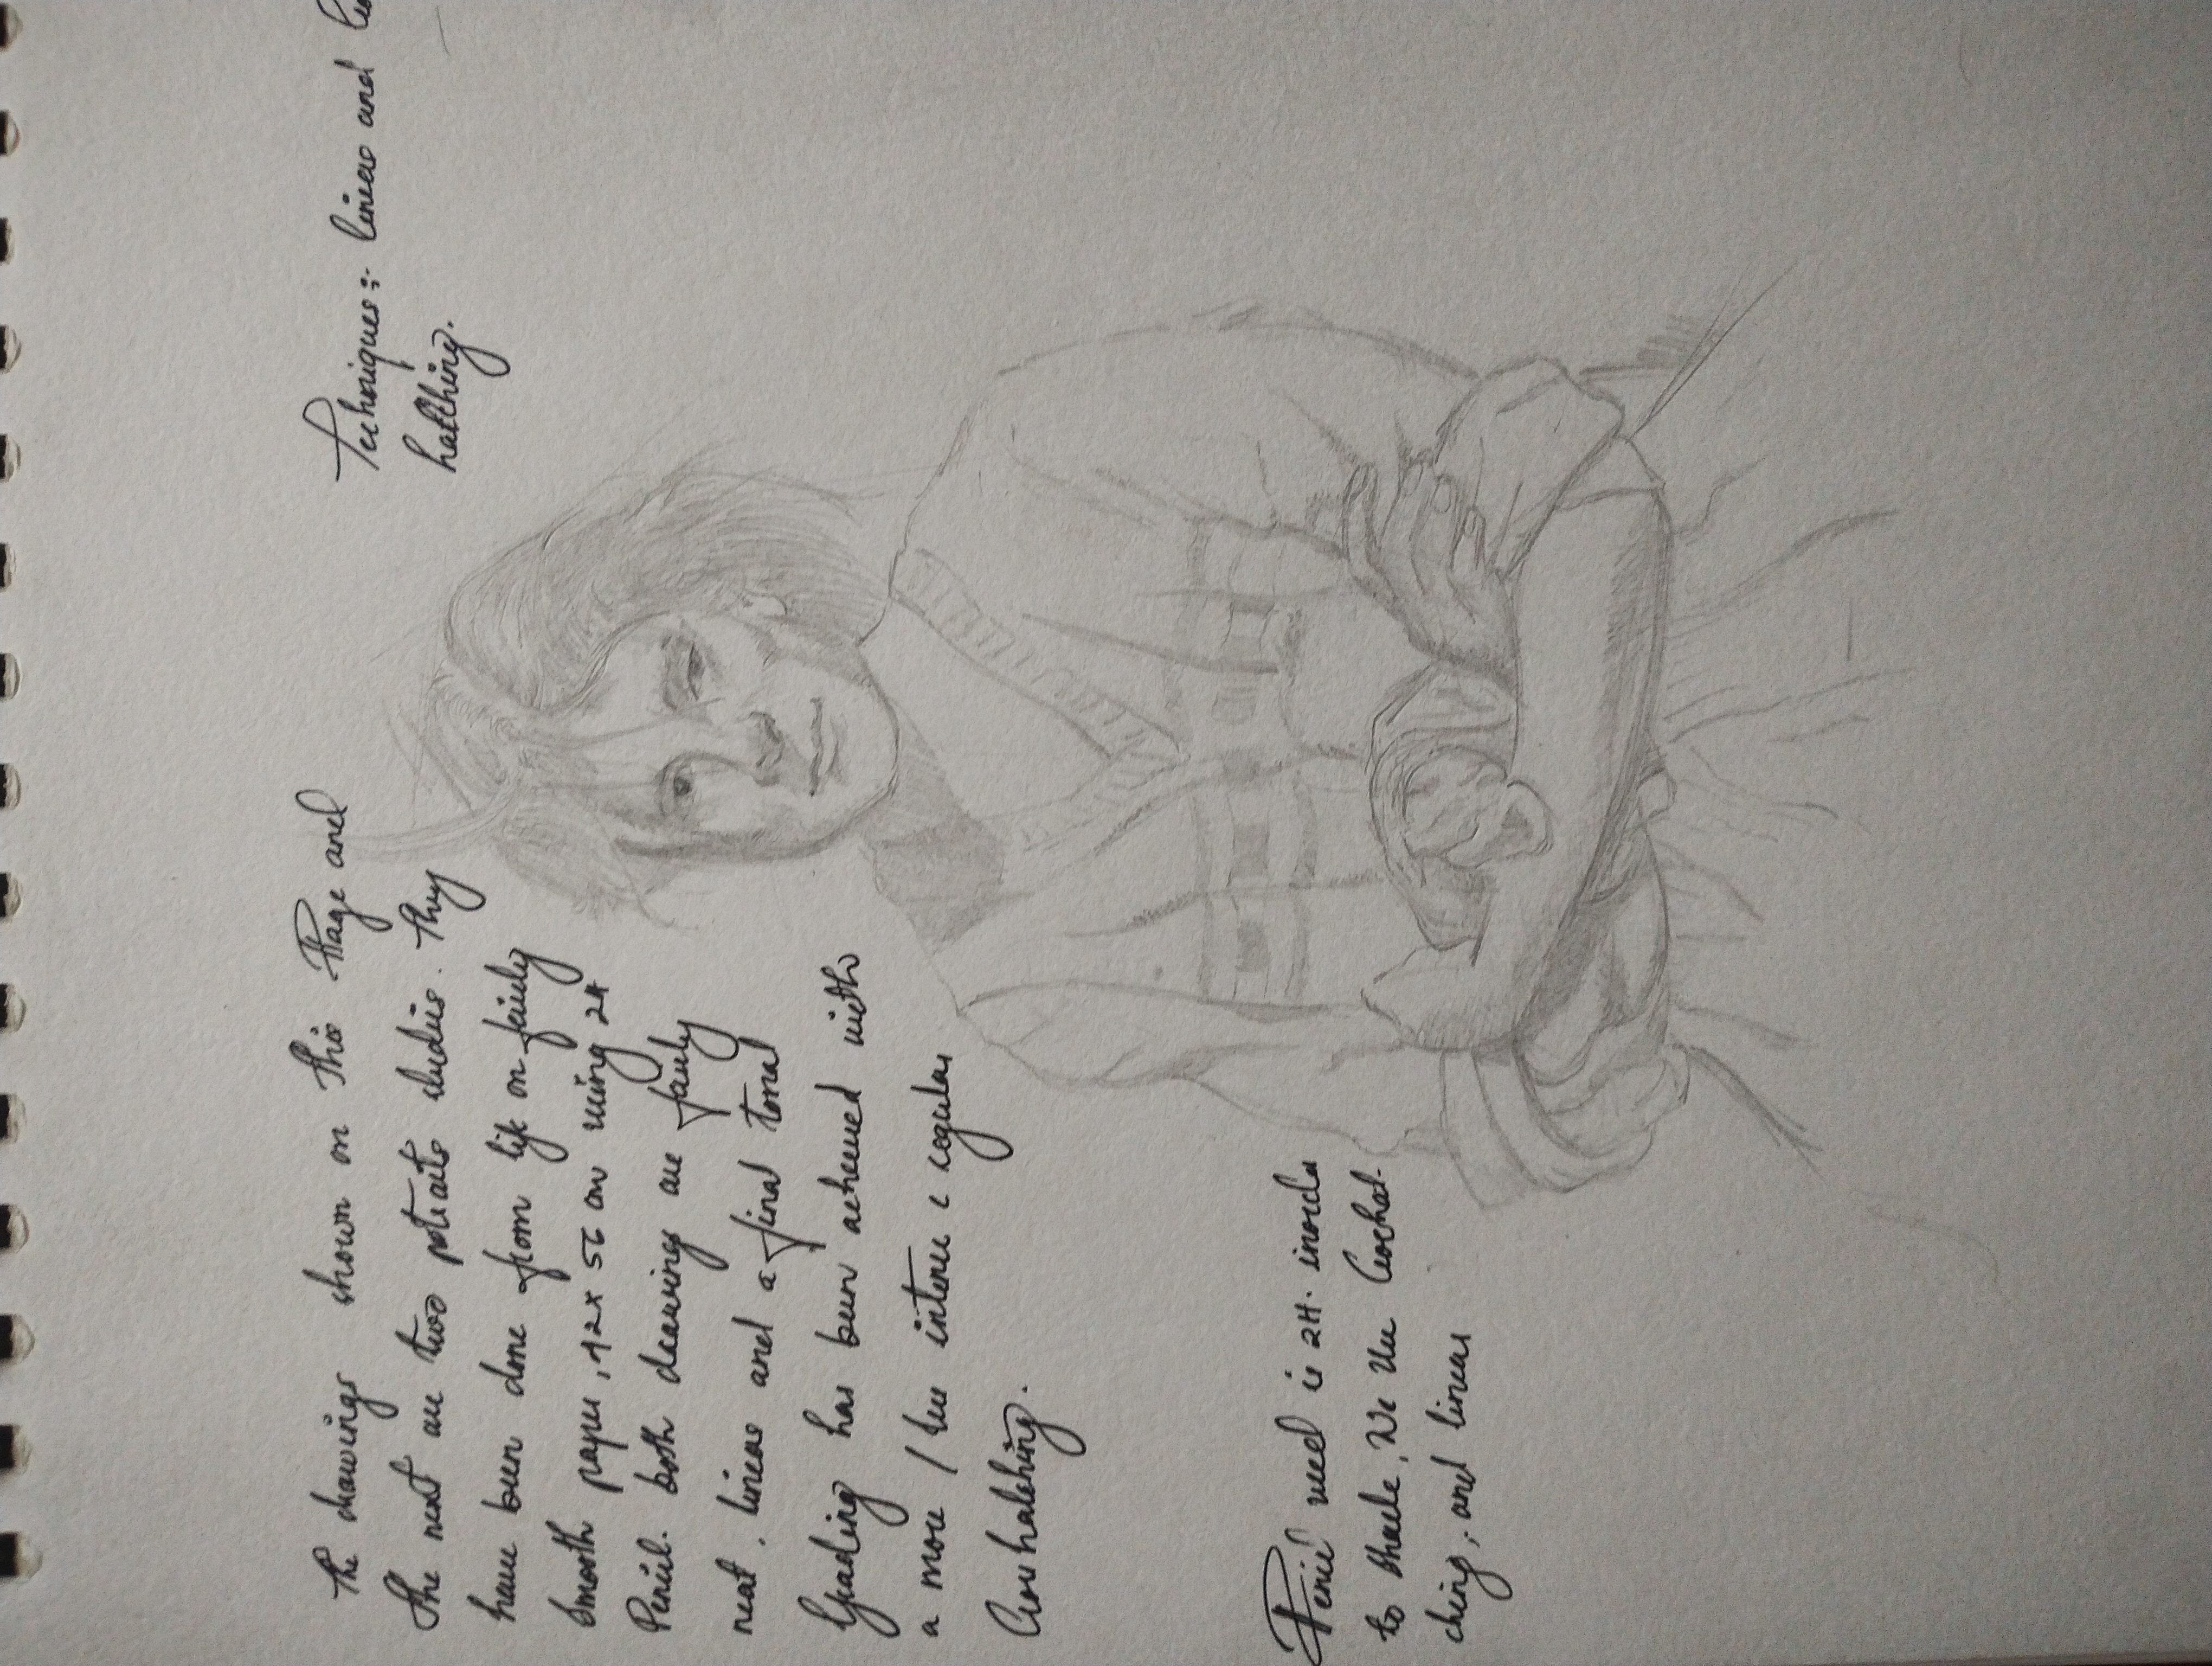 The drawings shown on this Page and
the next are two potraits studies. They
have been done from life on fairly
smooth paper, 42 x 56 cm using 2H
Pencil. both drawings are fairly
neat, linear and a final tonal
Grading has been achieved with
a more / less intense & regular
Crosshatching.
Techniques:- linear and
hatching.
Pencil used is 2H. inorder
to shade, We Use Croshat-
ching, and linear